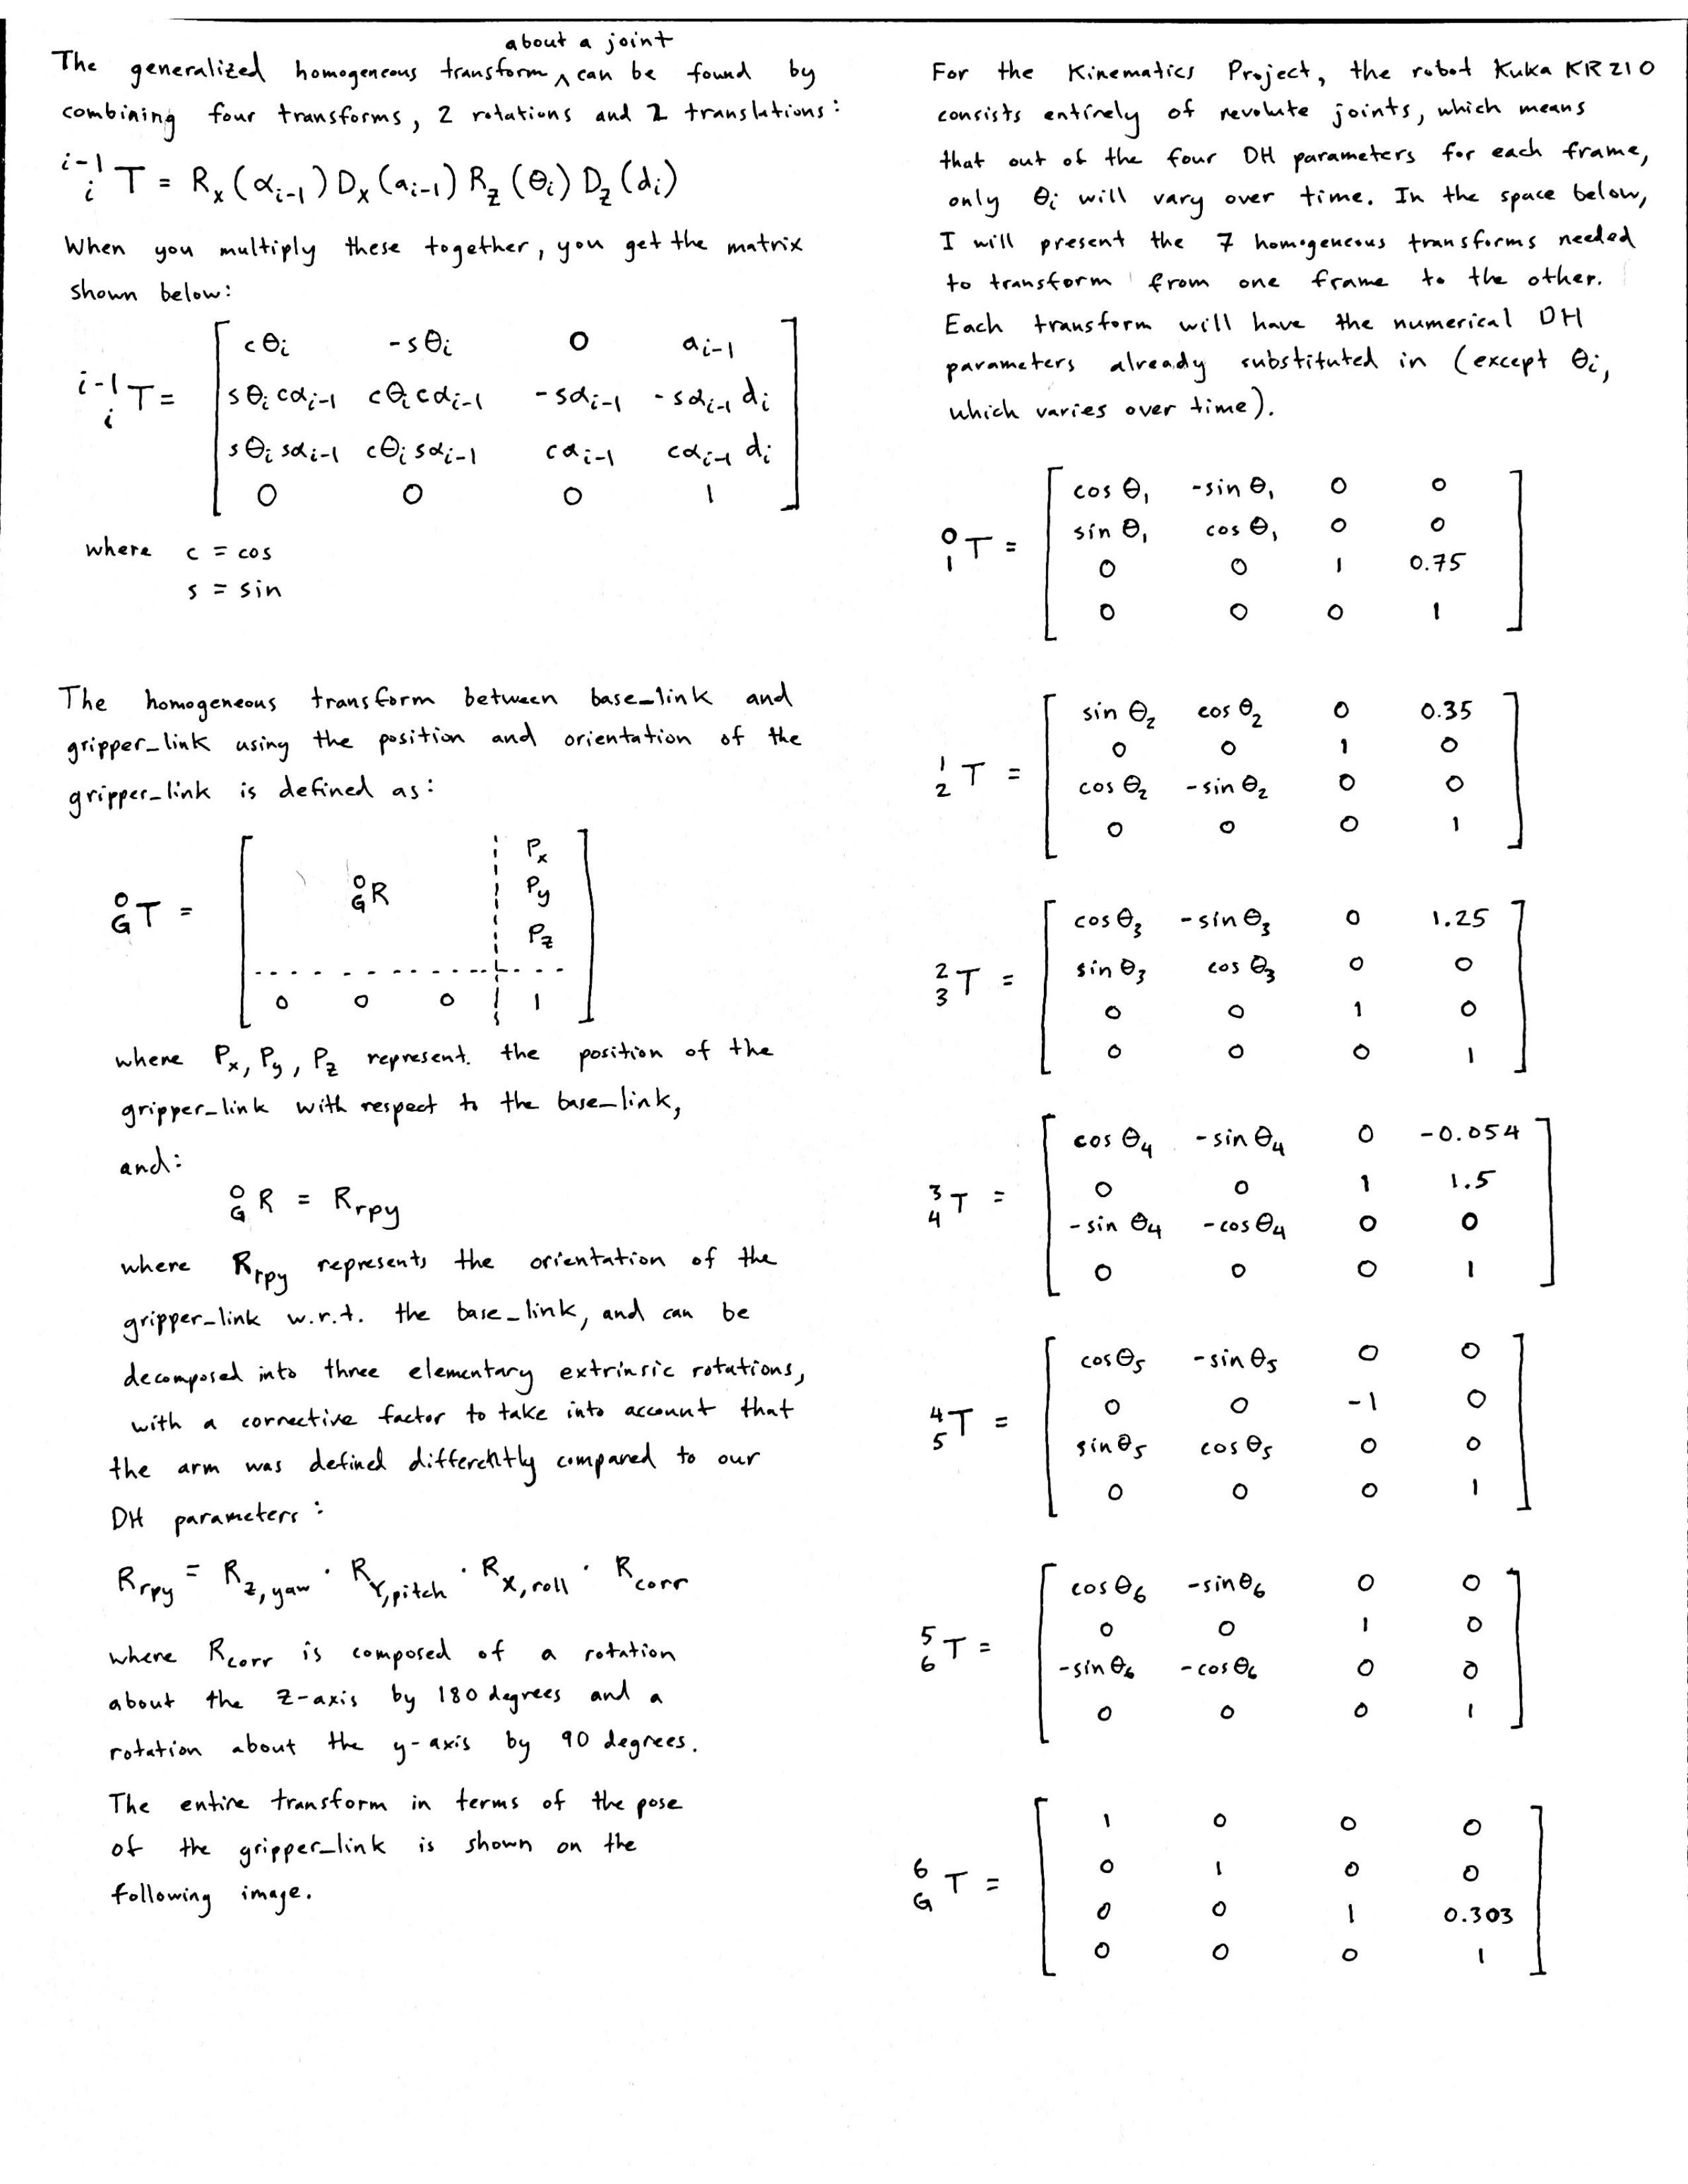 The generalized homogeneous transform ^ about a joint can be found by
combining four transforms, 2 rotations and 2 translations:
i-1 i T = Rx(αi-1) Dx(ai-1) Rz(θi) Dz(di)
When you multiply these together, you get the matrix
shown below:
cθi -sθi 0 ai-1
i-1 i T = sθi cαi-1 cθi cαi-1 -sαi-1 -sαi-1 di
sθi sαi-1 cθi sαi-1 cαi-1 cαi-1 di
0 0 0 1
where c = cos
s = sin
The homogeneous transform between base_link and
gripper_link using the position and orientation of the
gripper_link is defined as:
Px
0 G T = 0 G R Py
Pz
0 0 0 1
where Px, Py, Pz represent. the position of the
gripper_link with respect to the base_link,
and:
0 G R = Rrpy
where Rrpy represents the orientation of the
gripper_link w.r.t. the base_link, and can be
decomposed into three elementary extrinsic rotations,
with a corrective factor to take into account that
the arm was defined differently compared to our
DH parameters:
Rrpy = Rz,yaw · RY,pitch · RX,roll · Rcorr
where Rcorr is composed of a rotation
about the z-axis by 180 degrees and a
rotation about the y-axis by 90 degrees.
The entire transform in terms of the pose
of the gripper_link is shown on the
following image.
For the Kinematics Project, the robot Kuka KR210
consists entirely of revolute joints, which means
that out of the four DH parameters for each frame,
only θi will vary over time. In the space below,
I will present the 7 homogeneous transforms needed
to transform from one frame to the other.
Each transform will have the numerical DH
parameters already substituted in (except θi,
which varies over time).
cos θ1 -sin θ1 0 0
0 1 T = sin θ1 cos θ1 0 0
0 0 1 0.75
0 0 0 1
sin θ2 cos θ2 0 0.35
1 2 T = 0 0 1 0
cos θ2 -sin θ2 0 0
0 0 0 1
cos θ3 -sin θ3 0 1.25
2 3 T = sin θ3 cos θ3 0 0
0 0 1 0
0 0 0 1
cos θ4 -sin θ4 0 -0.054
3 4 T = 0 0 1 1.5
-sin θ4 -cos θ4 0 0
0 0 0 1
cos θ5 -sin θ5 0 0
4 5 T = 0 0 -1 0
sin θ5 cos θ5 0 0
0 0 0 1
cos θ6 -sin θ6 0 0
5 6 T = 0 0 1 0
-sin θ6 -cos θ6 0 0
0 0 0 1
1 0 0 0
6 G T = 0 1 0 0
0 0 1 0.303
0 0 0 1